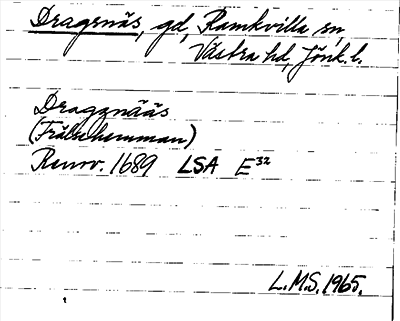 Dragsnäs, gd, Ramkvilla sn,
Västra hd, Jönk. l.
Draggznääs
(Frälsehemman)
Renov. 1689 LSA E³²
L.M.S. 1965.